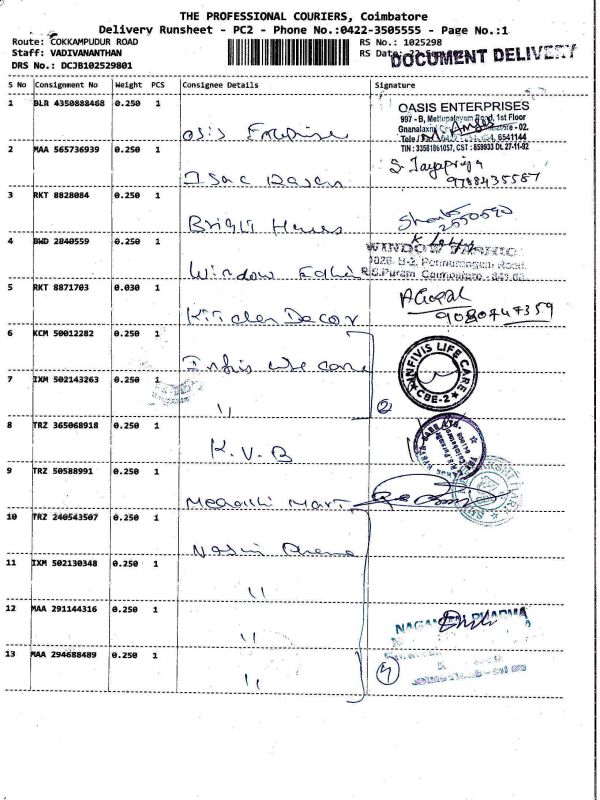 THE PROFESSIONAL COURIERS, Coimbatore
Delivery Runsheet - PC2 - Phone No.:0422-3505555 - Page No.:1
Route: COKKAMPUDUR ROAD
RS No.: 1025298
Staff: VADIVANANTHAN
RS Date:
DOCUMENT DELIVERY
DRS No.: DCJB102529801
S No Consignment No Weight PCS Consignee Details Signature
1 BLR 4350888468 0.250 1
OASIS ENTERPRISES
997 - B, Mettupalayam Road, 1st Floor
6541144
TIN : 33581861057, CST : 858933 Dt. 27-11-92
Oasis Enterprise
2 MAA 565736939 0.250 1
S. Jayapriya
9788435587
3 RKT 8828084 0.250 1
Bright Homes
2550590
4 BWD 2840559 0.250 1
WINDOW FASHIO
R.S.Puram, Coimbatore
Window
5 RKT 8871703 0.030 1
A Gopal
9080747359
Kitchen Decor
6 KCM 50012282 0.250 1
Infivis life care
INFIVIS LIFE CARE
CBE-2
7 IXM 502143263 0.250 1
"
2
8 TRZ 365068918 0.250 1
K.V.B
9 TRZ 50588991 0.250 1
Meenakshi Mart
10 TRZ 240543507 0.250 1
11 IXM 502130348 0.250 1
"
12 MAA 291144316 0.250 1
PHARMA
"
13 MAA 294688489 0.250 1
"
4